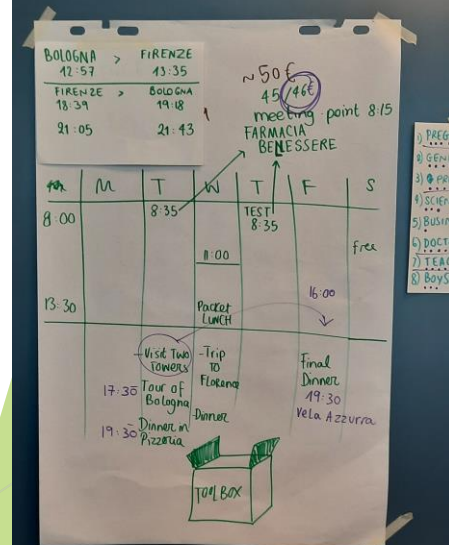 BOLOGNA > FIRENZE
12:57 13:35
FIRENZE > BOLOGNA
18:39 19:18
21:05 21:43
~50€
45/46€
meeting point 8:15
FARMACIA
BENESSERE
M T W T F S
8:00 8:35 TEST
8:35
free
11:00
13:30 Packet
LUNCH
16:00
- Visit Two
Towers
17:30 Tour of
Bologna
19:30 Dinner in
Pizzeria
- Trip
TO
Florence
- Dinner
Final
Dinner
19:30
Vela Azzurra
TOOLBOX
1) PREG
2) GEN
3)
4) SCIEN
5) BUSIN
6) DOCT
7) TEAC
8) BOYS